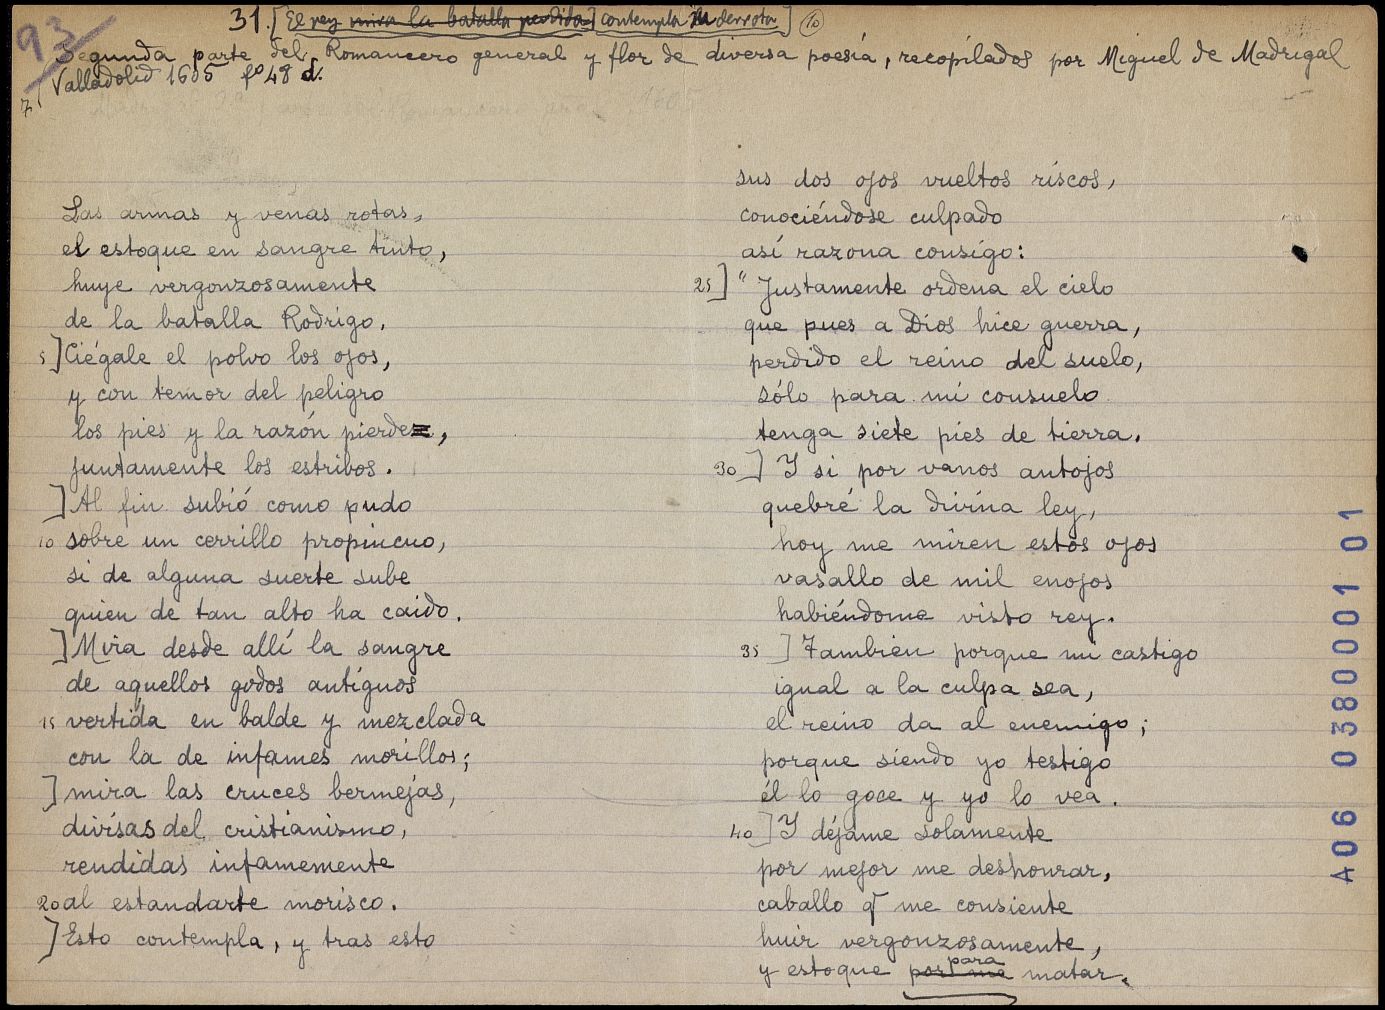 93
31. [El rey mira la batalla perdida] contempla su derrota] (10)
Segunda parte del Romancero general y flor de diversa poesía, recopilados por Miguel de Madrigal
Valladolid 1605 fº 48 d.
7
Las armas y venas rotas,
el estoque en sangre tinto,
huye vergonzosamente
de la batalla Rodrigo.
5 ] Ciégale el polvo los ojos,
y con temor del peligro
los pies y la razón pierde,
juntamente los estribos.
] Al fin subió como pudo
10 sobre un cerrillo propincuo,
si de alguna suerte sube
quien de tan alto ha caido.
] Mira desde allí la sangre
de aquellos godos antiguos
15 vertida en balde y mezclada
con la de infames morillos;
] mira las cruces bermejas,
divisas del cristianismo,
rendidas infamemente
20 al estandarte morisco.
] Esto contempla, y tras esto
sus dos ojos vueltos riscos,
conociéndose culpado
así razona consigo:
25 ] "Justamente ordena el cielo
que pues a Dios hice guerra,
perdido el reino del suelo,
sólo para mi consuelo
tenga siete pies de tierra.
30 ] Y si por vanos antojos
quebré la divina ley,
hoy me miren estos ojos
vasallo de mil enojos
habiéndome visto rey.
35 ] Tambien porque mi castigo
igual a la culpa sea,
el reino da al enemigo;
porque siendo yo testigo
él lo goce y yo lo vea.
40 ] Y déjame solamente
por mejor me deshonrar,
caballo q̄ me consiente
huir vergonzosamente,
y estoque por me para matar.
A06 0380001 01